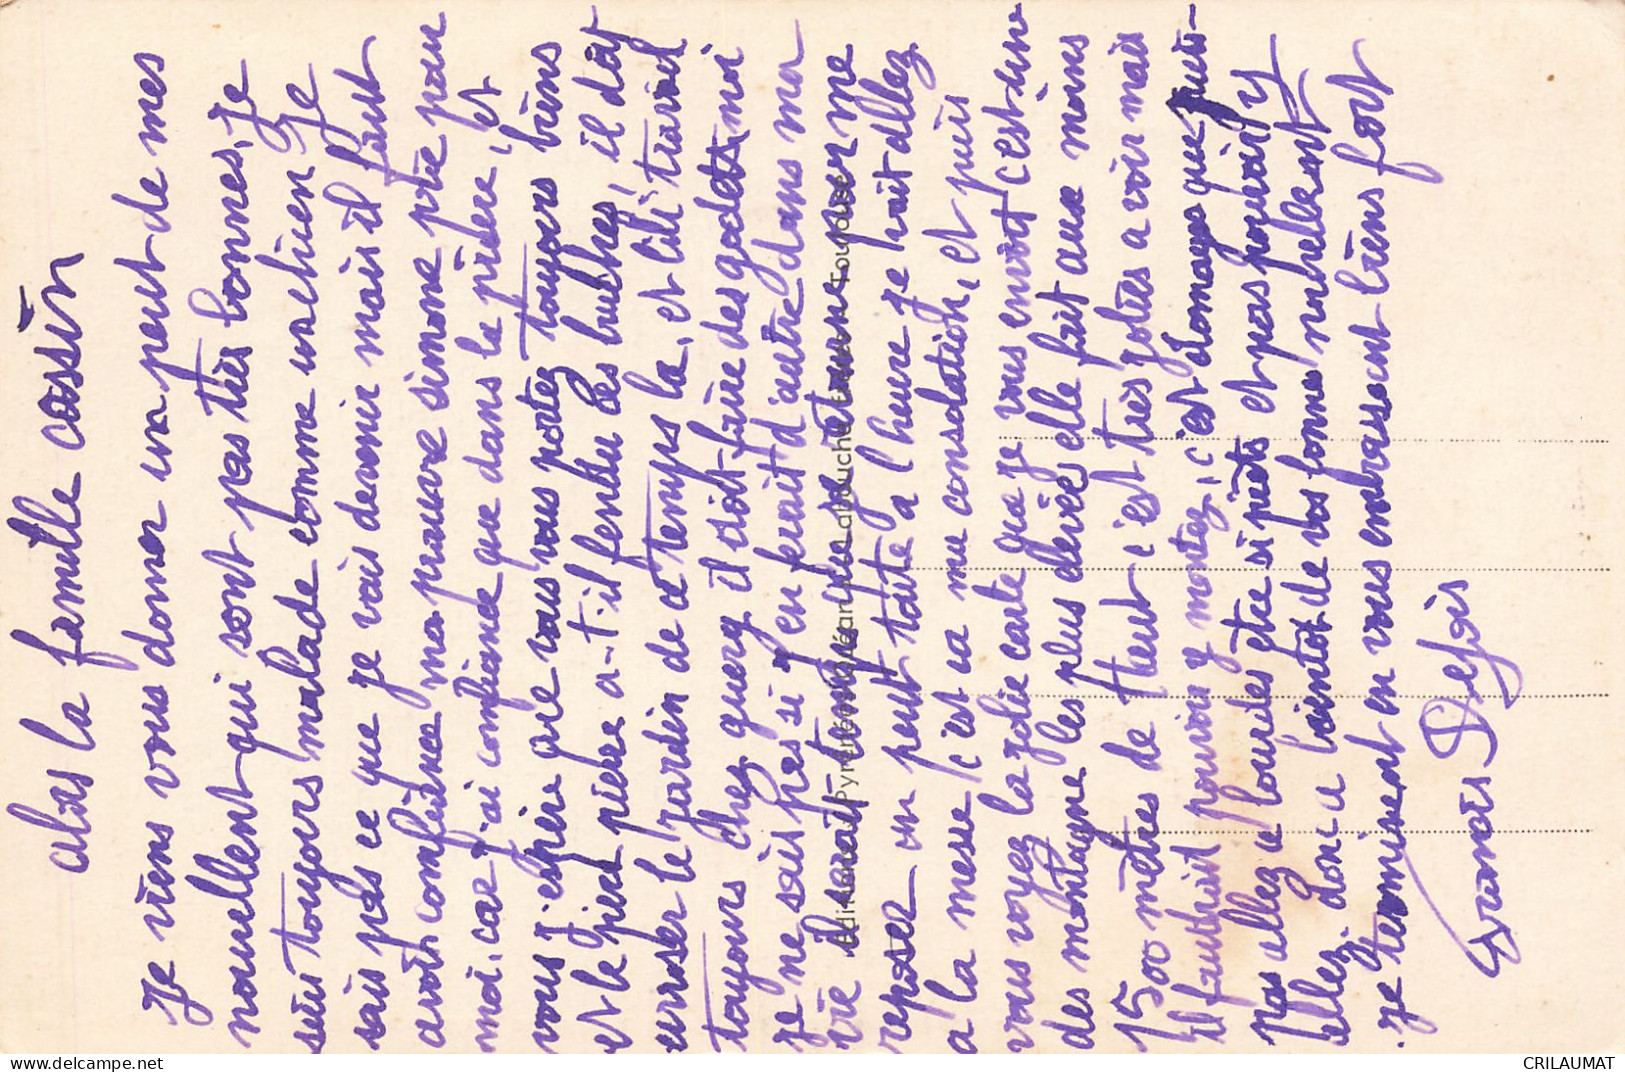 alas la famille cassin
Je viens vous donner un peut de mes
nouvellent qui sont pas très bonnes, Je
suis toujours malade comme un chien Je
sais pas ce que je vais devenir mais il faut
avoir confience ma pauvre simone prie pour
moi, car j'ai confience que dans la prière, et
vous j'espère que vous vous portez toujours biens
et le pierre a-t-il fendu les buches, il doit
arroser le jardin de ce temps la, et lili travail
toujours chez il doit faire des godets, moi
je ne sais pas si y en aurait d'autre dans ma
vie il serait temps que je meure pour me
reposer un peut toute a l'heure je vait allez
a la messe c'est sa ma consolation, et puis
vous voyez la jolie carte que je vous envoit c'est une
des montagne les plus élevée elle fait aux moins
1500 mètres de Haut c'est très jolies a voir mais
il faudrait pouvoir y montez, c'est domage que puis-
pas allez a lourdes etre si prets et pas pouvoir y
allez, donc a bientot de vos bonnes nouvellent
je terminent en vous embrassent biens fort
Edition Pyrénées Labouche Toulouse
CRILAUMAT